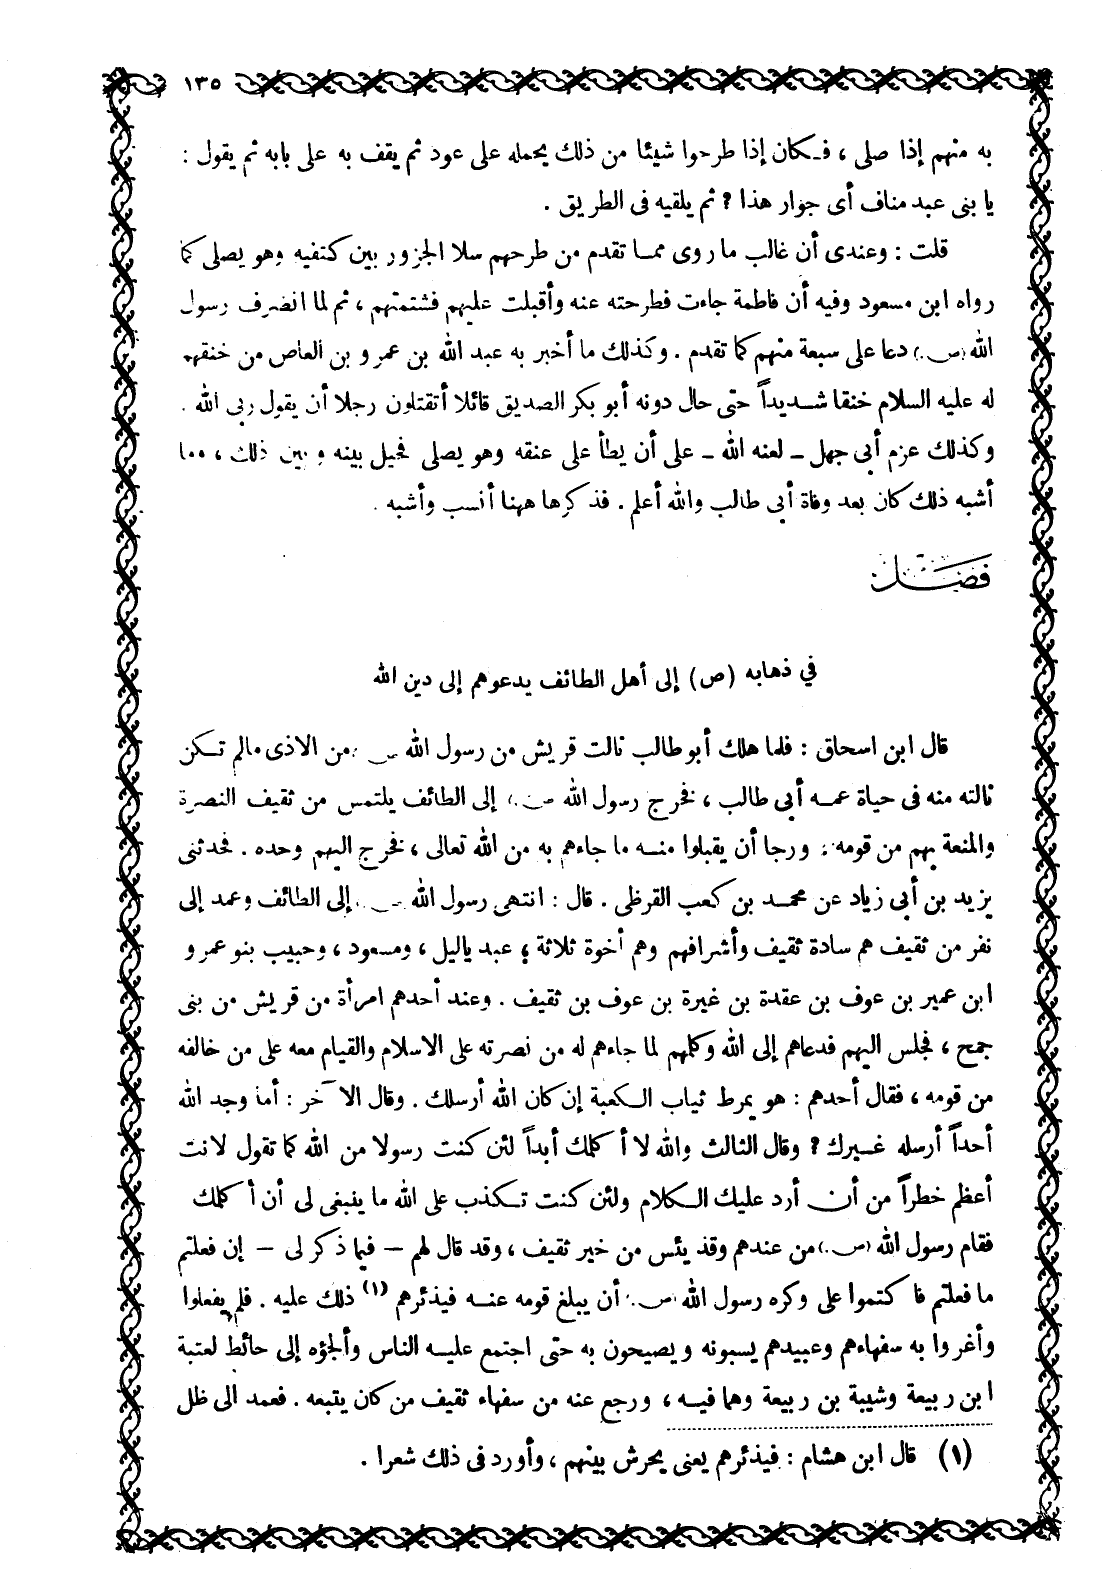 ١٣٥
به منهم إذا صلى ، فـكان إذا طرحوا شيئا من ذلك يحمله على عود ثم يقف به على بابه ثم يقول :
يا بنى عبد مناف أى جوار هذا ؟ ثم يلقيه فى الطريق .
قلت : وعندى أن غالب ما روى ممـا تقدم من طرحهم سلا الجزور بين كتفيه وهو يصلى كما
رواه ابن مسعود وفيه أن فاطمة جاءت فطرحته عنه وأقبلت عليهم فشتمتهم ، ثم لما انصرف رسول
الله (ص) دعا على سبعة منهم كما تقدم . وكذلك ما أخبر به عبد الله بن عمرو بن العاص من خنقهم
له عليه السلام خنقا شـديداً حتى حال دونه أبو بكر الصديق قائلا أتقتلون رجلا أن يقول ربى الله .
وكذلك عزم أبى جهل ـ لعنه الله ـ على أن يطأ على عنقه وهو يصلى فحيل بينه وبين ذلك ، مما
أشبه ذلك كان بعد وفاة أبى طالب والله أعلم . فذكرها ههنا أنسب وأشبه .
فصل
في ذهابه (ص) إلى أهل الطائف يدعوهم إلى دين الله
قال ابن اسحاق : فلما هلك أبو طالب نالت قريش من رسول الله (ص) من الاذى مالم تـكن
نالته منه فى حياة عمـه أبى طالب ، فخرج رسول الله (ص) إلى الطائف يلتمس من ثقيف النصرة
والمنعة بهم من قومه ، ورجا أن يقبلوا منـه ما جاءهم به من الله تعالى ، فخرج اليهم وحده . فحدثنى
يزيد بن أبى زياد عن محمـد بن كعب القرظى . قال : انتهى رسول الله (ص) إلى الطائف وعمد إلى
نفر من ثقيف هم سادة ثقيف وأشرافهم وهم أخوة ثلاثة ؛ عبد ياليل ، ومسعود ، وحبيب بنو عمرو
ابن عمير بن عوف بن عقدة بن غيرة بن عوف بن ثقيف . وعند أحدهم امرأة من قريش من بنى
جمح ، فجلس اليهم فدعاهم إلى الله وكلمهم لما جاءهم له من نصرته على الاسلام والقيام معه على من خالفه
من قومه ، فقال أحدهم : هو يمرط ثياب الـكعبة إن كان الله أرسلك . وقال الآخر : أما وجد الله
أحداً أرسله غـيرك ؟ وقال الثالث والله لا أكلمك أبداً لئن كنت رسولا من الله كما تقول لانت
أعظم خطراً من أن أرد عليك الـكلام ولئن كنت تـكذب على الله ما ينبغى لى أن أكلمك
فقام رسول الله (ص) من عندهم وقد يئس من خير ثقيف ، وقد قال لهم – فيما ذكر لى – إن فعلتم
ما فعلتم فاكتموا على وكره رسول الله (ص) أن يبلغ قومه عنـه فيذئرهم (١) ذلك عليه . فلم يفعلوا
وأغروا به سفهاءهم وعبيدهم يسبونه ويصيحون به حتى اجتمع عليـه الناس وألجؤه إلى حائط لعتبة
ابن ربيعة وشيبة بن ربيعة وهما فيـه ، ورجع عنه من سفهاء ثقيف من كان يتبعه . فعمد الى ظل
(١) قال ابن هشام : فيذئرهم يعنى يحرش بينهم ، وأورد فى ذلك شعرا .